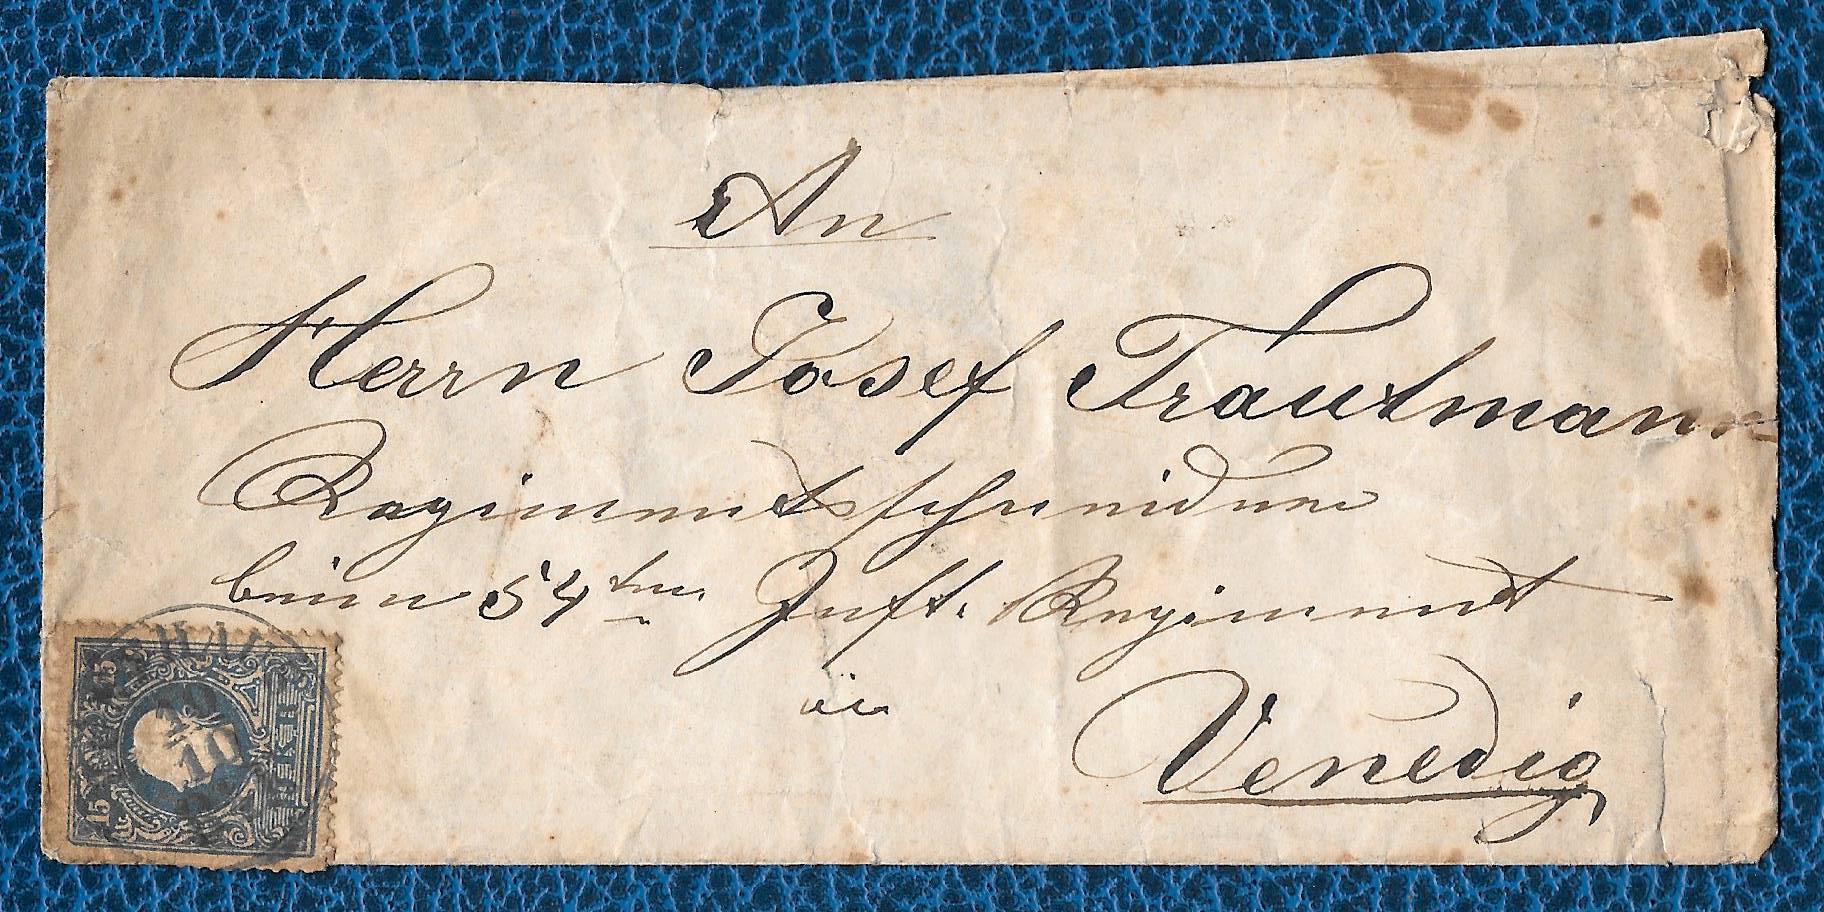 An
Herrn Josef Trautmann
Regimentsschneider
beim 54ten Inft. Regiment
in
Venedig
15
15
10